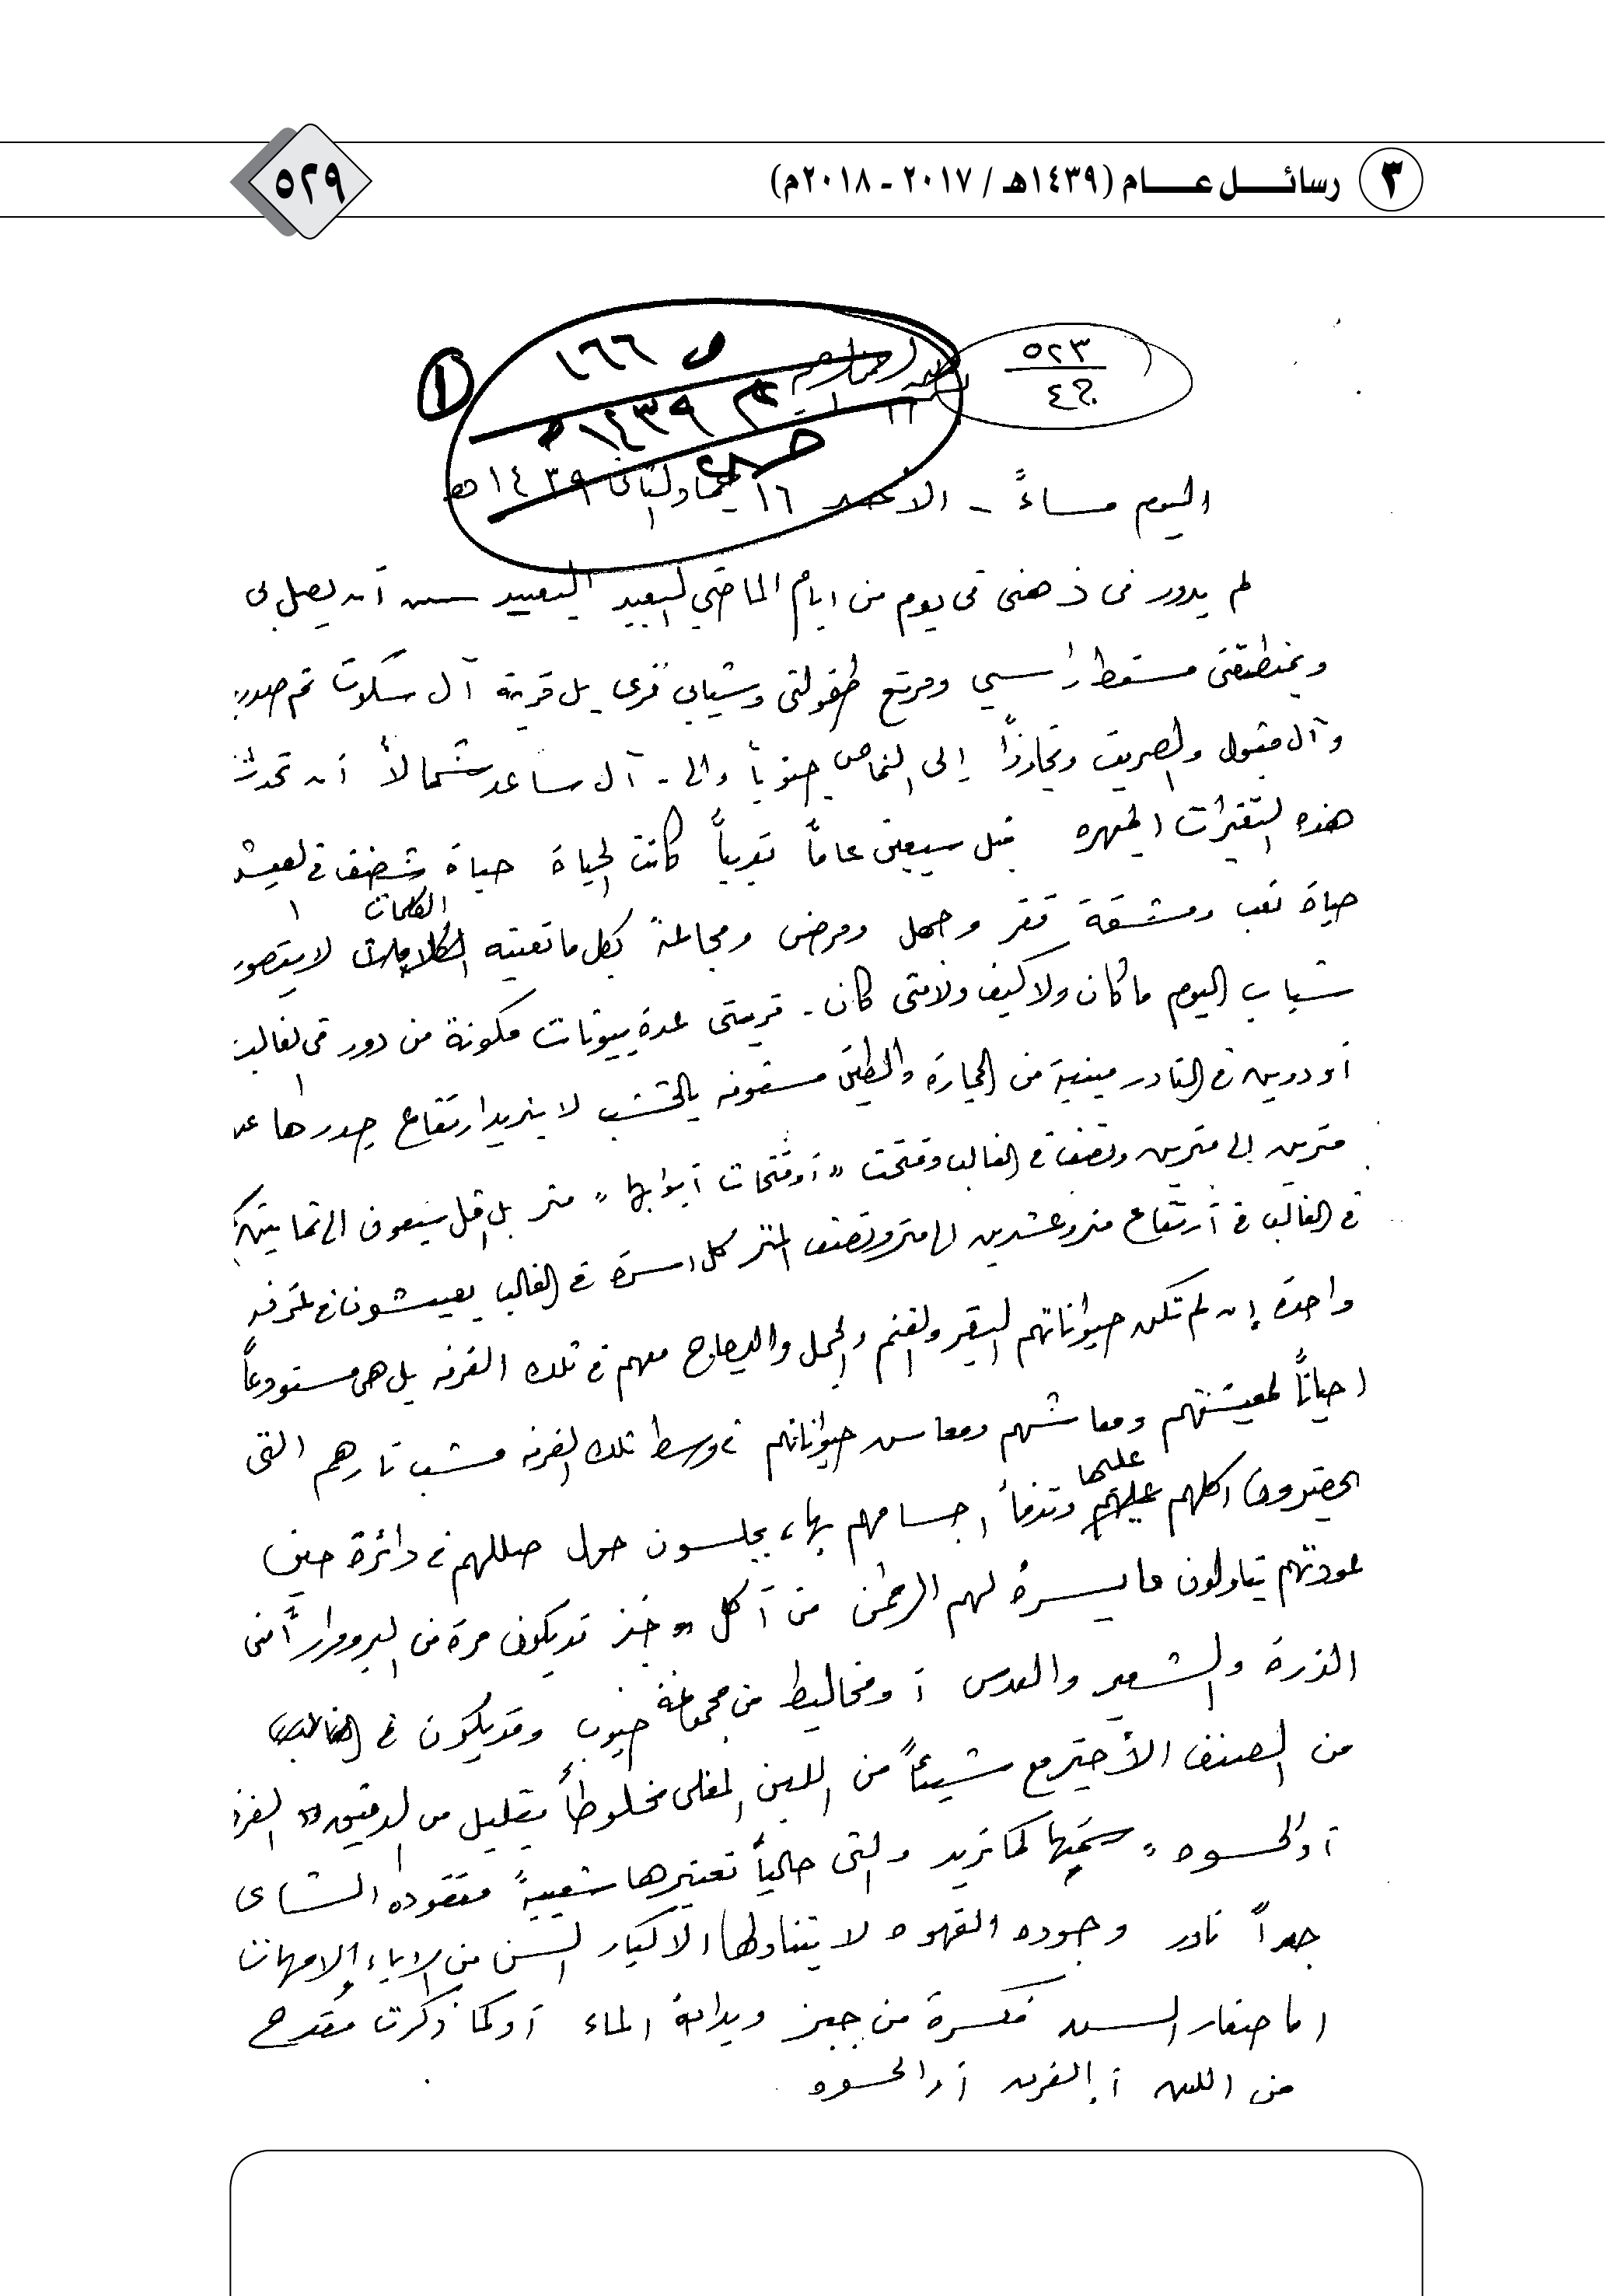 ٣ رسائل عام (١٤٣٩هـ / ٢٠١٧ - ٢٠١٨م)
٥٢٩
٥٢٣
ص ١٦٦
١
١٤٣٩هـ
اليوم مساءً - الأحد ١٦ جمادى الثاني ١٤٣٩هـ
لم يدور في ذهني في يوم من ايام الماضي البعيد البعيد أن يصل بي
وبمنطقتي مسقط رأسي ومرتع طفولتي وشبابي قرى بل قرية آل سكوت ثم
وآل مقبول والصريف وتجاوزاً إلى النماص جنوباً والى - آل ساعد شمالاً أن تحدث
هذه التغيرات المبهره قبل سبعين عاماً تقريباً كانت الحياة حياة شضف في العيش
حياة تعب ومشقة فقر وجهل ومرض ومجاعة بكل ما تعنيه الكلمات لا يتصور
شباب اليوم ما كان ولا كيف ولا متى كان - قريتي عدة بيوتات مكونة من دور في الغالب
أو دورين في النادر مبنية من الحجارة والطين مسقوفه بالخشب لا يزيد ارتفاع جدرها عن
مترين الى مترين ونصف في الغالب وفتحت "أو فتحات أبوابها" متر بل اقل سبعون الى ثمانين
في الغالب في أرتفاع متر وعشرين الى متر ونصف المتر كل اسرة في الغالب يعيشون في غرفه
واحدة إن لم تكن حيواناتهم البقر والغنم والجمل والدجاج معهم في تلك الغرفه بل هي مستودعاً
احياناً لمعيشتهم ومعاشهم ومعاش حيواناتهم في وسط تلك الغرفه مشب نارهم التي
يحضرون اكلهم عليها وتدفأ اجسامهم بها، يجلسون حول صللهم في دائرة حين
عودتهم يتناولون ما يسره لهم الرحمن من أكل "خبز قد يكون مرة من البر ومراراً من
الذرة والشعير والعدس أو مخاليط من مجموعة حبوب وقد يكون في الغالب
من الصنف الأخير مع شيئاً من اللبن المغلى مخلوطاً بقليل من الدقيق "الفرقه
أو الحسوه" سمّيها كما تريد والتي حالياً تعتبرها شعبية مفقوده الشاى
جداً نادر وجوده القهوه لا يتناولها الا كبار السن من الاباء والامهات
اما صغار السن فكسرة من خبز وبداية الماء أو كما ذكرت مقدح
من اللبن أو الفرقه أو الحسوه